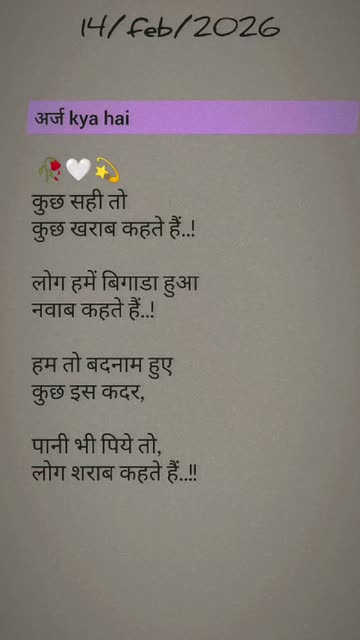 14/feb/2026
अर्ज kya hai
🥀🤍💫
कुछ सही तो
कुछ खराब कहते हैं..!
लोग हमें बिगाडा हुआ
नवाब कहते हैं..!
हम तो बदनाम हुए
कुछ इस कदर,
पानी भी पिये तो,
लोग शराब कहते हैं..!!